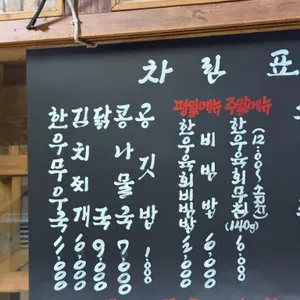 차림표
한우무우국
김치찌개 6,000
닭국 9,000
콩나물국 7,000
공깃밥 1,000
평일메뉴
한우육회비빔밥
비빔밥 6,000
주말메뉴
한우육회무침(140g)
(12:00~소진시)